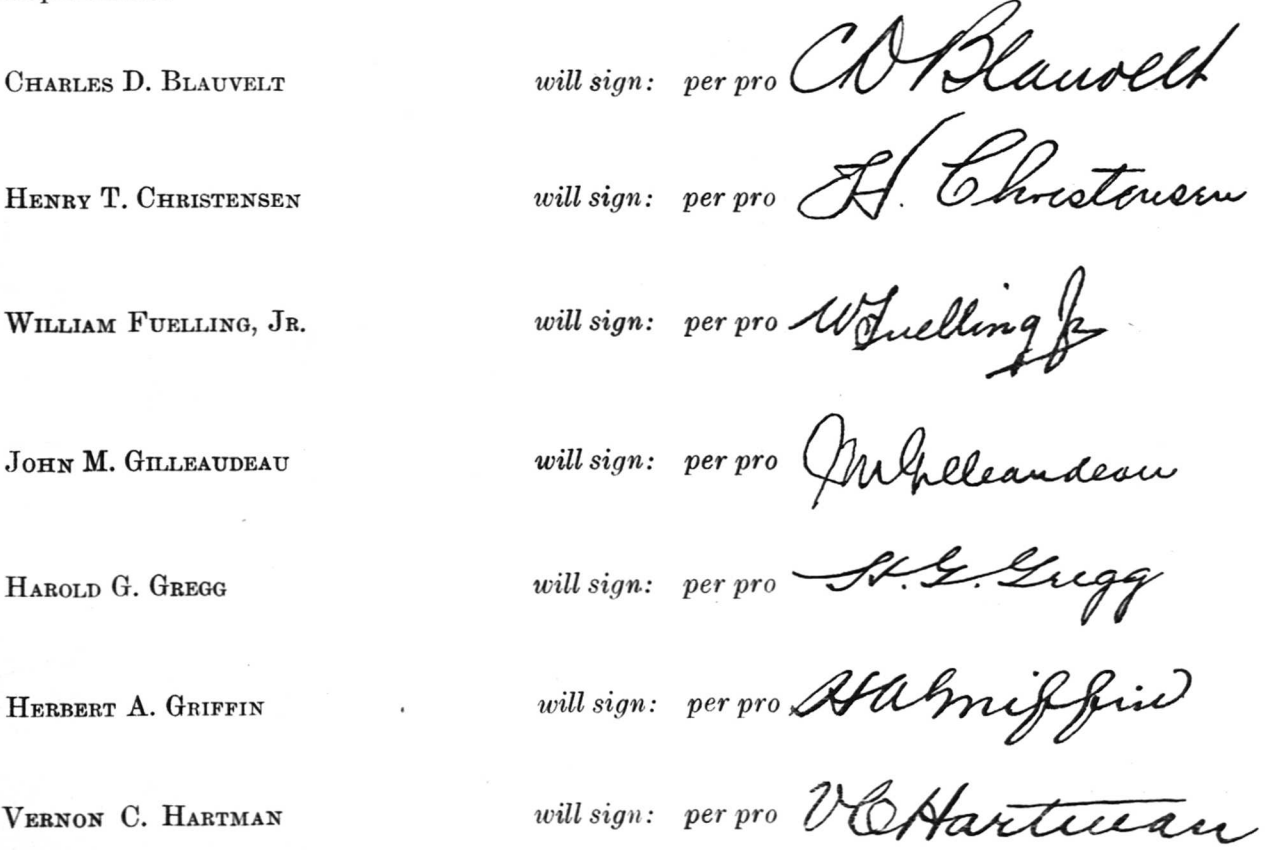 CHARLES D. BLAUVELT will sign: per pro CD Blauvelt
HENRY T. CHRISTENSEN will sign: per pro H. Christensen
WILLIAM FUELLING, JR. will sign: per pro W Fuelling Jr
JOHN M. GILLEAUDEAU will sign: per pro JM Gilleaudeau
HAROLD G. GREGG will sign: per pro H. G. Gregg
HERBERT A. GRIFFIN will sign: per pro HA Griffin
VERNON C. HARTMAN will sign: per pro VC Hartman